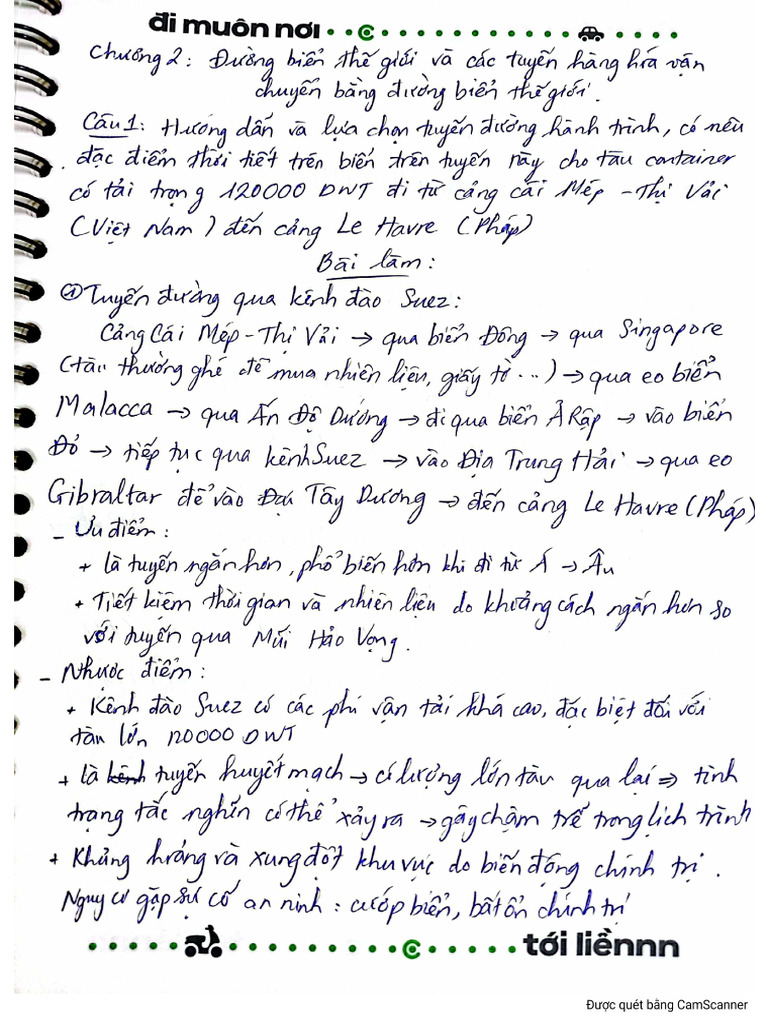 đi muôn nơi
Chương 2: Đường biển thế giới và các tuyến hàng hóa vận
chuyển bằng đường biển thế giới.
Câu 1: Hướng dẫn và lựa chọn tuyến đường hành trình, có nêu
đặc điểm thời tiết trên biển trên tuyến này cho tàu container
có tải trọng 120000 DWT đi từ cảng cái Mép - Thị Vải
(Việt Nam) đến cảng Le Havre (Pháp)
Bài làm:
① Tuyến đường qua kênh đào Suez:
Cảng Cái Mép - Thị Vải → qua biển Đông → qua Singapore
(tàu thường ghé để mua nhiên liệu, giấy tờ...) → qua eo biển
Malacca → qua Ấn Độ Dương → đi qua biển Ả Rập → vào biển
Đỏ → tiếp tục qua kênh Suez → vào Địa Trung Hải → qua eo
Gibraltar để vào Đại Tây Dương → đến cảng Le Havre (Pháp)
- Ưu điểm:
+ là tuyến ngắn hơn, phổ biến hơn khi đi từ Á → Âu
+ Tiết kiệm thời gian và nhiên liệu do khoảng cách ngắn hơn so
với tuyến qua Mũi Hảo Vọng.
- Nhược điểm:
+ Kênh đào Suez có các phí vận tải khá cao, đặc biệt đối với
tàu lớn 120000 DWT
+ là kênh tuyến huyết mạch → có lượng lớn tàu qua lại ⇒ tình
trạng tắc nghẽn có thể xảy ra → gây chậm trễ trong lịch trình
+ Khủng hoảng và xung đột khu vực do biến động chính trị.
Nguy cơ gặp sự cố an ninh: cướp biển, bất ổn chính trị
tới liềnnn
Được quét bằng CamScanner